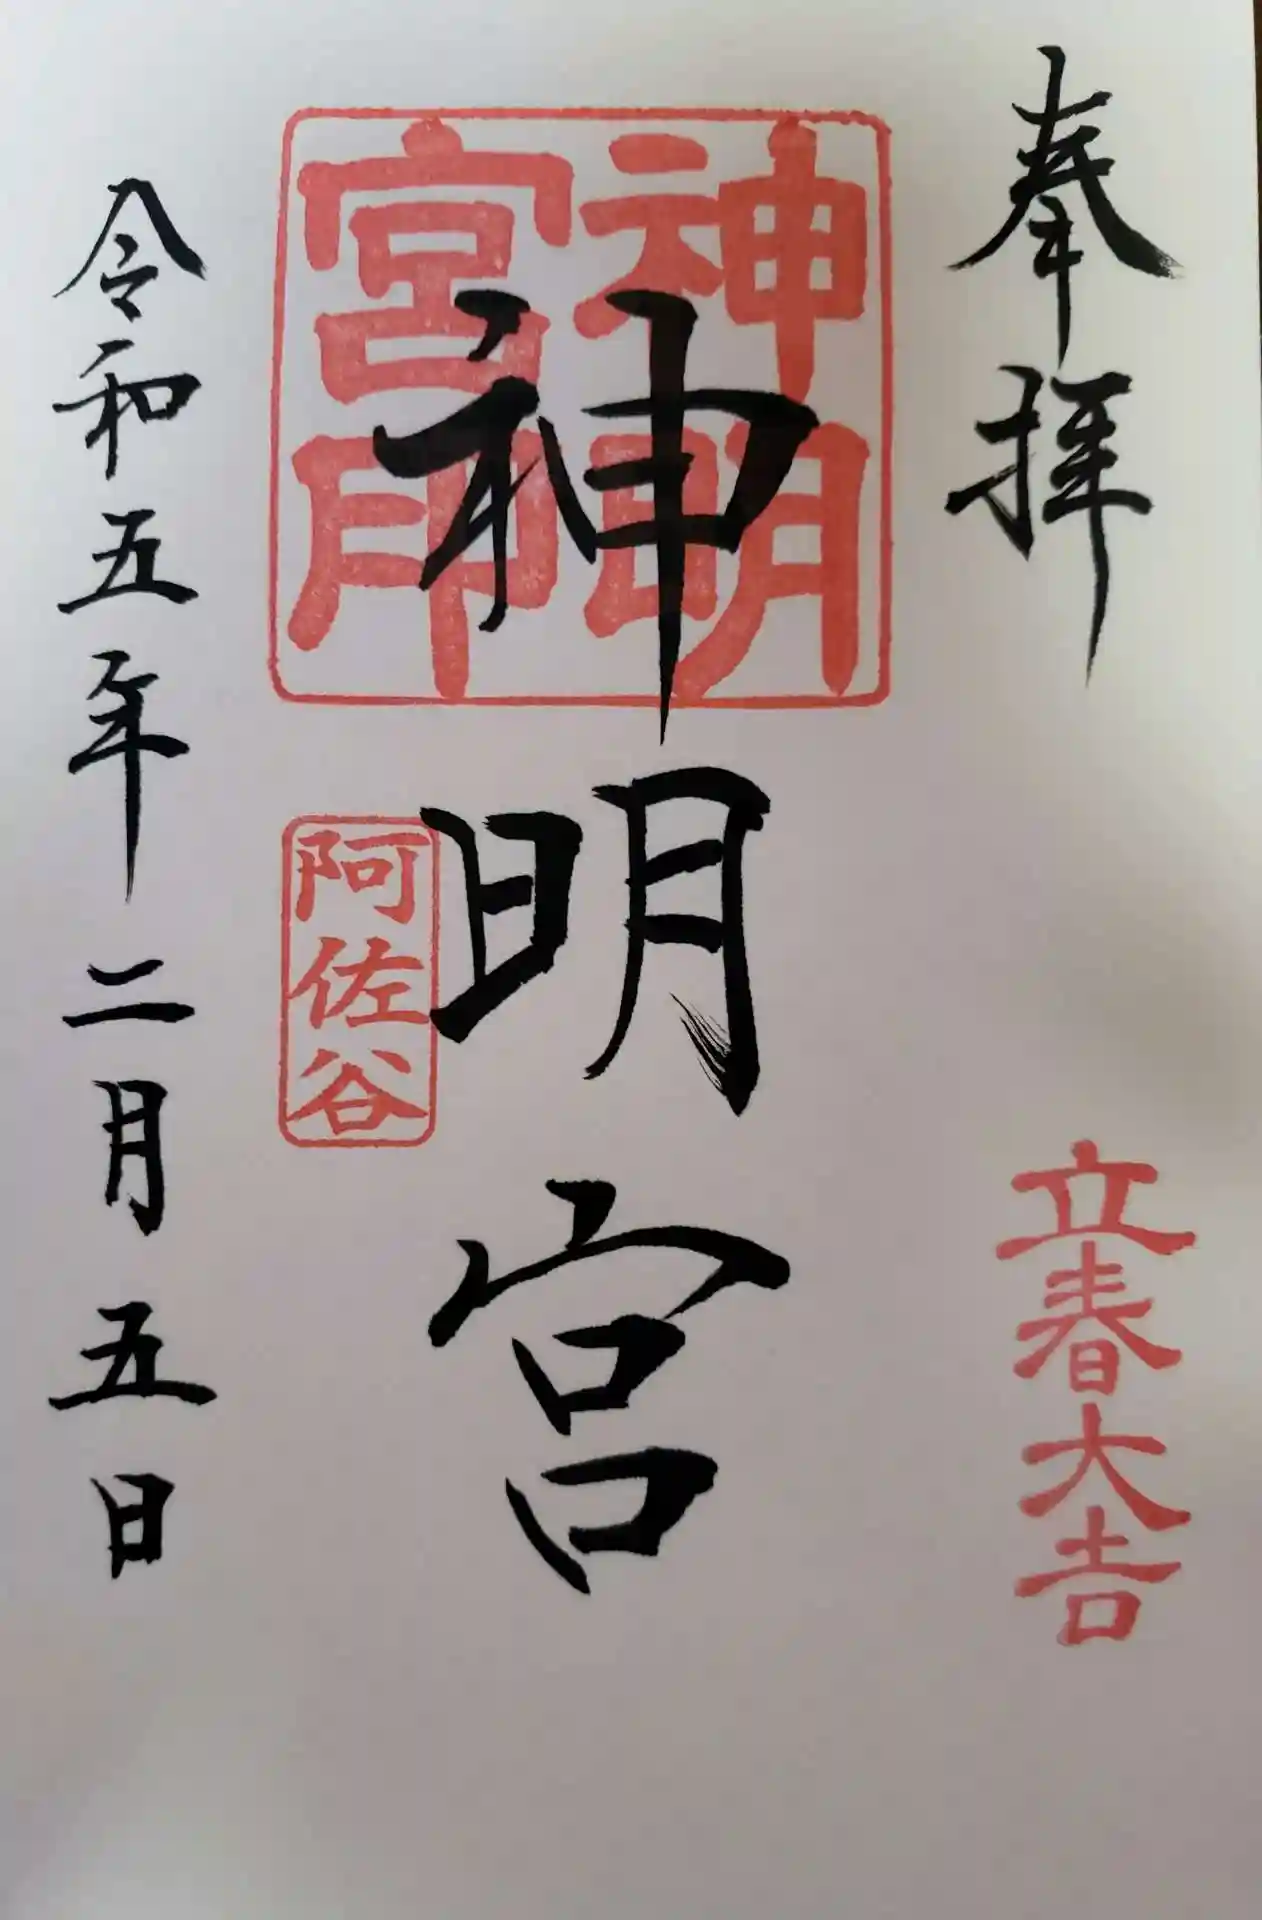 奉拝
立春大吉
神明宮印
神明宮
阿佐谷
令和五年二月五日